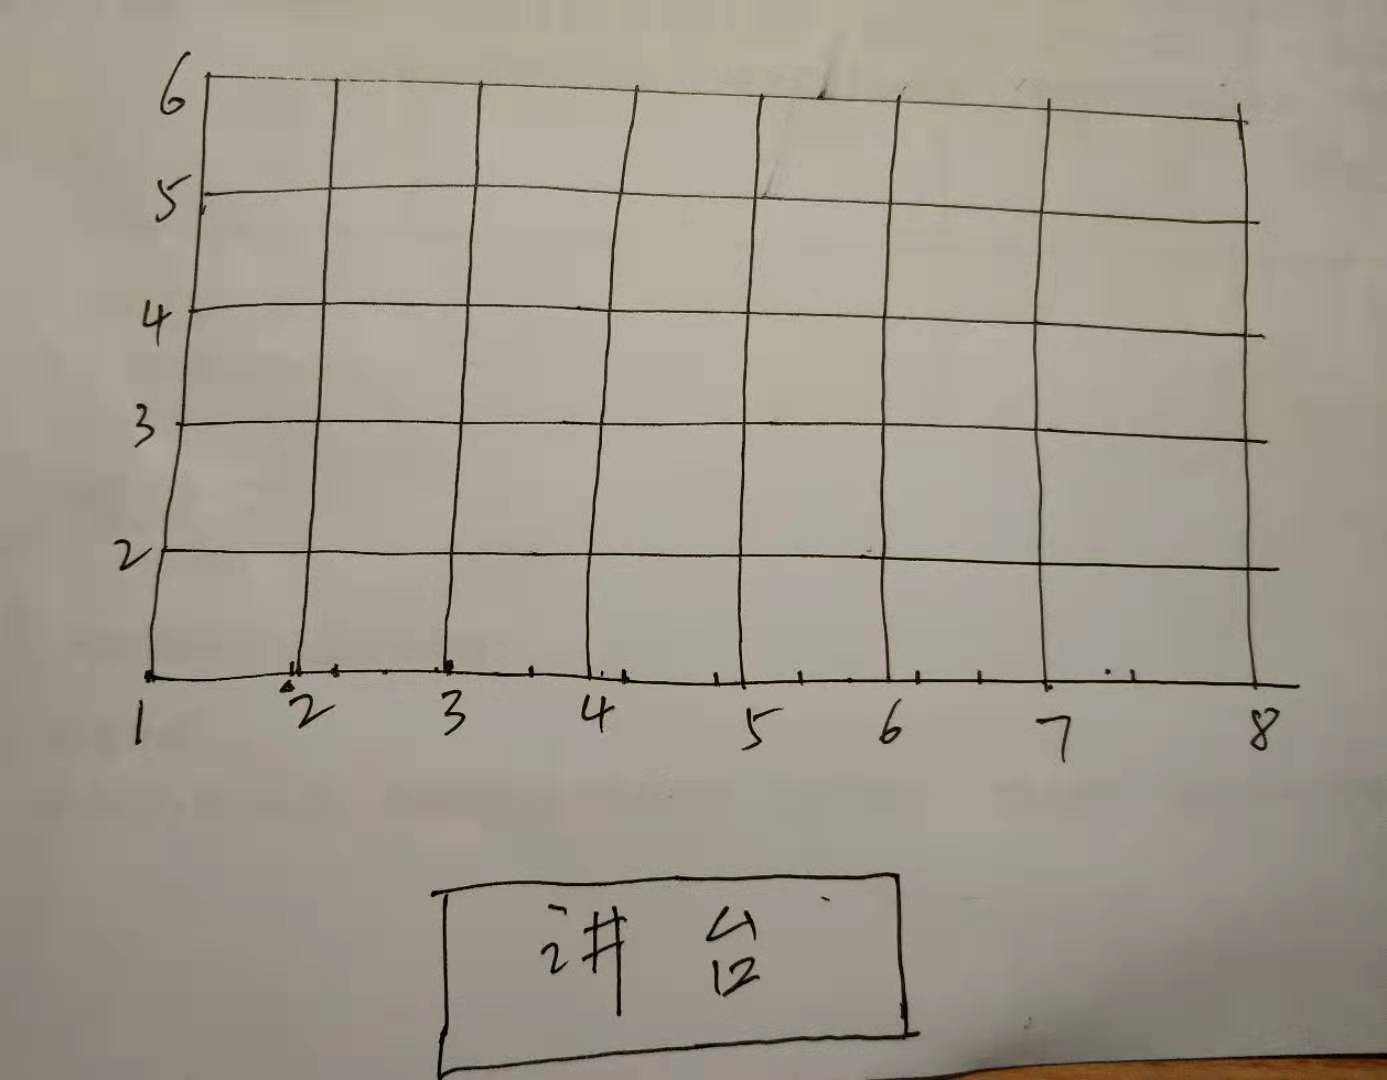 6
5
4
3
2
1 2 3 4 5 6 7 8
讲台